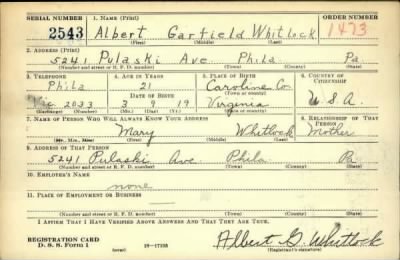 SERIAL NUMBER 1. NAME (Print) ORDER NUMBER
2543 Albert Garfield Whitlock 1473
(First) (Middle) (Last)
2. ADDRESS (Print)
5241 Pulaski Ave. Phila Pa
(Number and street or R. F. D. number) (Town) (County) (State)
3. TELEPHONE 4. AGE IN YEARS 5. PLACE OF BIRTH 6. COUNTRY OF CITIZENSHIP
Phila 21 Caroline Co.
DATE OF BIRTH (Town or county)
Vic 2033 3 9 19 Virginia U.S.A.
(Exchange) (Number) (Mo.) (Day) (Yr.) (State or country)
7. NAME OF PERSON WHO WILL ALWAYS KNOW YOUR ADDRESS 8. RELATIONSHIP OF THAT PERSON
Mary Whitlock Mother
(Mr., Mrs., Miss) (First) (Middle) (Last)
9. ADDRESS OF THAT PERSON
5241 Pulaski Ave. Phila. Pa
(Number and street or R. F. D. number) (Town) (County) (State)
10. EMPLOYER'S NAME
none
11. PLACE OF EMPLOYMENT OR BUSINESS
(Number and street or R. F. D. number) (Town) (County) (State)
I AFFIRM THAT I HAVE VERIFIED ABOVE ANSWERS AND THAT THEY ARE TRUE.
REGISTRATION CARD
D. S. S. Form 1 (over) 16—17105 Albert G. Whitlock
(Registrant's signature)